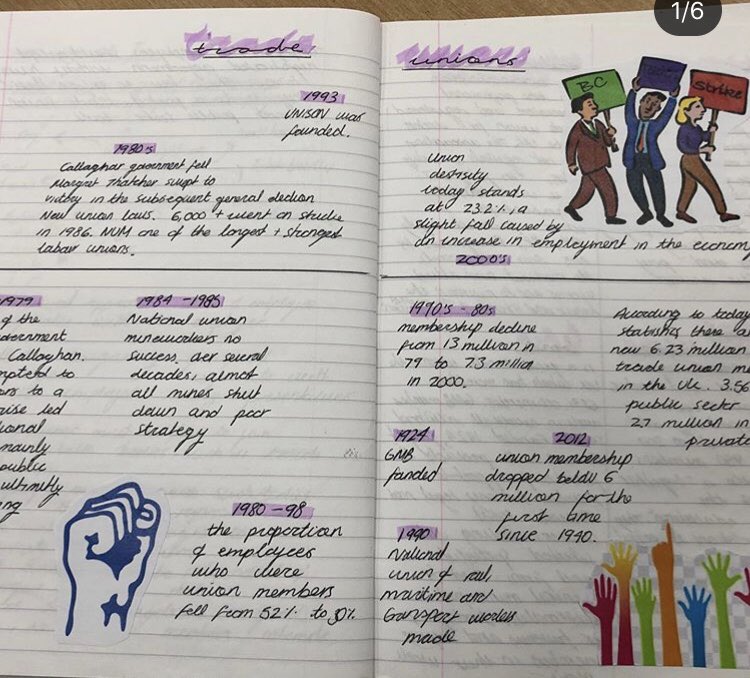 1/6
trade
unions
1993
UNISON was
founded.
1980's
Callaghar government fell
Margret Thatcher swept to
victry in the subsequent general election
New union laws. 6,000 + went on strike
in 1986. NUM one of the longest + strongest
labour unions.
BC
Strike
Union
destisity
today stands
at 23.2%, a
slight fall caused by
an increase in employment in the econom
2000's
1979
of the
vernment
Callaghan.
mpted to
ons to a
rise led
ional
mainly
public
ultimitly
ng
1984 - 1985
National union
mineworkers no
success. over several
decades, almost
all mines shut
down and poor
strategy
1980 - 98
the proportion
of employees
who were
union members
fell from 52% to 30%.
1970's - 80s
membership decline
from 13 million in
79 to 7.3 million
in 2000.
According to today
statistics there a
now 6.23 million
trade union me
in the UK. 3.56
public sector
2.7 million in
private
1924
GMB
founded
2012
union membership
dropped below 6
million for the
first time
since 1940.
1990
National
union of rail,
maritime and
transport workers
made